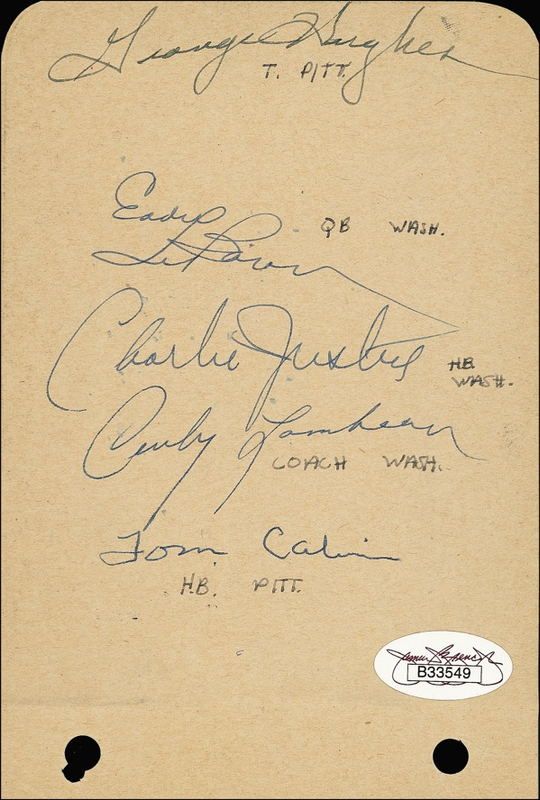 George Hughes
T. PITT.
Eddie
LeBaron
QB WASH.
Charlie Justice
HB.
WASH.
Curly Lambeau
COACH WASH.
Tom Calvin
H.B. PITT.
James Spence Jr
B33549